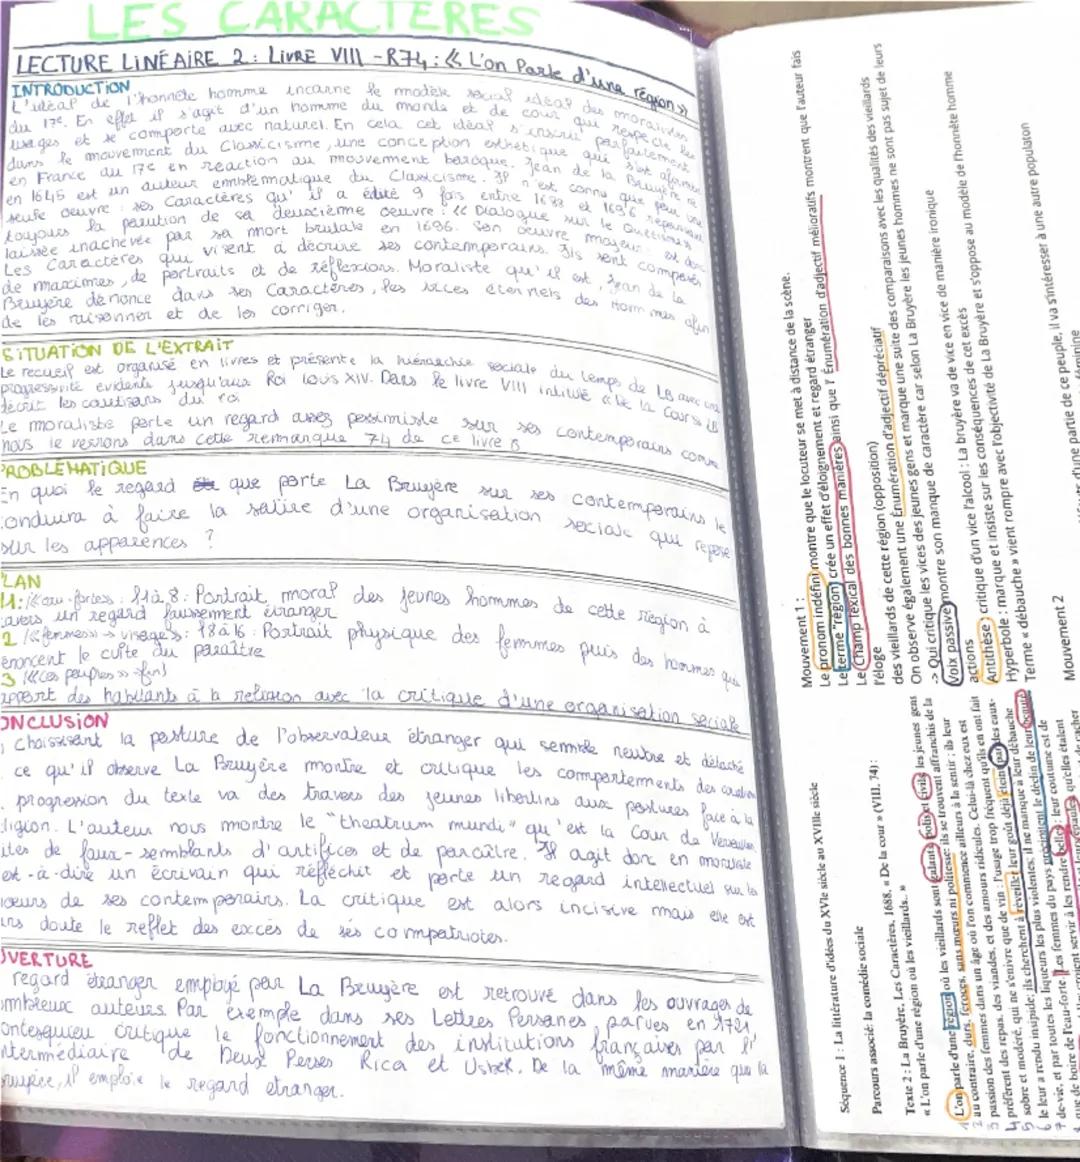 LES CARACTÈRES
LECTURE LINÉAIRE 2 : LIVRE VIII - R74 : « L'on Parle d'une région »
INTRODUCTION
L'idéal de l'honnête homme incarne le modèle social idéal des moralistes
du 17e. En effet il s'agit d'un homme du monde et de cour qui respecte les
usages et se comporte avec naturel. En cela cet idéal s'inscrit parfaitement
dans le mouvement du Classicisme, une conception esthétique qui s'est affirmée
en France au 17e en réaction au mouvement baroque. Jean de la Bruyère né
en 1645 est un auteur emblématique du Classicisme. Il n'est connu que pour une
seule oeuvre : ses Caractères qu'il a édité 9 fois entre 1688 et 1696 repoussant
toujours la parution de sa deuxième oeuvre : « Dialogue sur le Quiétisme »
laissée inachevée par sa mort brutale en 1696. Son oeuvre majeure est donc
Les Caractères qui visent à décrire ses contemporains. Ils sont composés
de maximes, de portraits et de réflexions. Moraliste qu'il est, Jean de La
Bruyère dénonce dans ses Caractères, les vices éternels des hommes afin
de les raisonner et de les corriger.
SITUATION DE L'EXTRAIT
Le recueil est organisé en livres et présente la hiérarchie sociale du temps de LB avec une
progressivité évidente jusqu'aux Roi Louis XIV. Dans le livre VIII intitulé « De la Cour » LB
décrit les courtisans du roi
Le moraliste porte un regard assez pessimiste sur ses contemporains comme
nous le verrons dans cette remarque 74 de ce livre 8
PROBLÉMATIQUE
En quoi le regard que porte La Bruyère sur ses contemporains le
conduira à faire la satire d'une organisation sociale qui repose
sur les apparences ?
PLAN
: l1 à 8 : Portrait moral des jeunes hommes de cette région à
travers un regard faussement étranger
2 / « femmes » → visages : l8 à 16 : Portrait physique des femmmes puis des hommes qui
énoncent le culte du paraître
3 « Ces peuples » → fin)
rapport des habitants à la religion avec la critique d'une organisation sociale
CONCLUSION
choisissant la posture de l'observateur étranger qui semble neutre et détaché
ce qu'il observe La Bruyère montre et critique les comportements des
progression du texte va des travers des jeunes libertins aux postures face à la
religion. L'auteur nous montre le "theatrum mundi" qu'est la Cour de Versailles
de faux-semblants d'artifices et de paraître. Il agit donc en moraliste
est-à-dire un écrivain qui réfléchit et porte un regard intellectuel sur les
moeurs de ses contemporains. La critique est alors incisive mais elle est
sans doute le reflet des excès de ses compatriotes.
OUVERTURE
regard étranger employé par La Bruyère est retrouvé dans les ouvrages de
nombreux auteurs. Par exemple dans ses Lettres Persanes parues en 1721,
Montesquieu critique le fonctionnement des institutions françaises par l'
intermédiaire de Deux Perses Rica et Usbek. De la même manière que la
Bruyère, il emploie le regard etranger.
Séquence 1 : La littérature d'idées du XVIe siècle au XVIIIe siècle
Parcours associé: la comédie sociale
Texte 2 : La Bruyère, Les Caractères, 1688, « De la cour » (VIII, 74) :
« L'on parle d'une région où les vieillards.. »
1 L'on parle d'une région où les vieillards sont galants, polis et civils; les jeunes gens
2 au contraire, durs, féroces, sans mœurs ni politesse: ils se trouvent affranchis de la
3 passion des femmes dans un âge où l'on commence ailleurs à la sentir ; ils leur
4 préfèrent des repas, des viandes, et des amours ridicules. Celui-là chez eux est
5 sobre et modéré, qui ne s'enivre que de vin : l'usage trop fréquent qu'ils en ont fait
6 le leur a rendu insipide; ils cherchent à réveiller leur goût déjà éteint par des eaux-
7 de-vie, et par toutes les liqueurs les plus violentes; il ne manque à leur débauche
que de boire de l'eau-forte. Les femmes du pays précipitent le déclin de leur beauté
servir à les rendre belles : leur coutume est de
qu'elles étaient
de cacher
Mouvement 1 :
Le pronom indéfini montre que le locuteur se met à distance de la scène.
Le terme "région" crée un effet d'éloignement et regard étranger
Le Champ lexical des bonnes manières ainsi que l' Énumération d'adjectif mélioratifs montrent que l'auteur fais
l'éloge
des vieillards de cette région (opposition)
On observe également une Énumération d'adjectif dépréciatif
des jeunes gens et marque une suite des comparaisons avec les qualités des vieillards
-> Qui critique les vices de caractère car selon La Bruyère les jeunes hommes ne sont pas sujet de leurs
Voix passive montre son manque de caractère
actions
Antithèse : critique d'un vice l'alcool : La bruyère va de vice en vice de manière ironique
Hyperbole : marque et insiste sur les conséquences de cet excès
Terme « débauche » vient rompre avec l'objectivité de La Bruyère et s'oppose au modèle de l'honnête homme
Mouvement 2
d'une partie de ce peuple, il va s'intéresser à une autre populaton